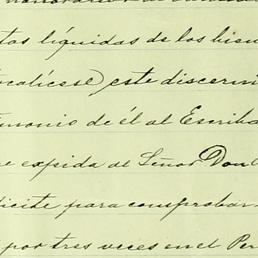 tas líquidas de los bien
ocalícese este discerni
imonio de él al Escriba
e expida al Señor Don
licite para comprobar
por tres veces en el Per